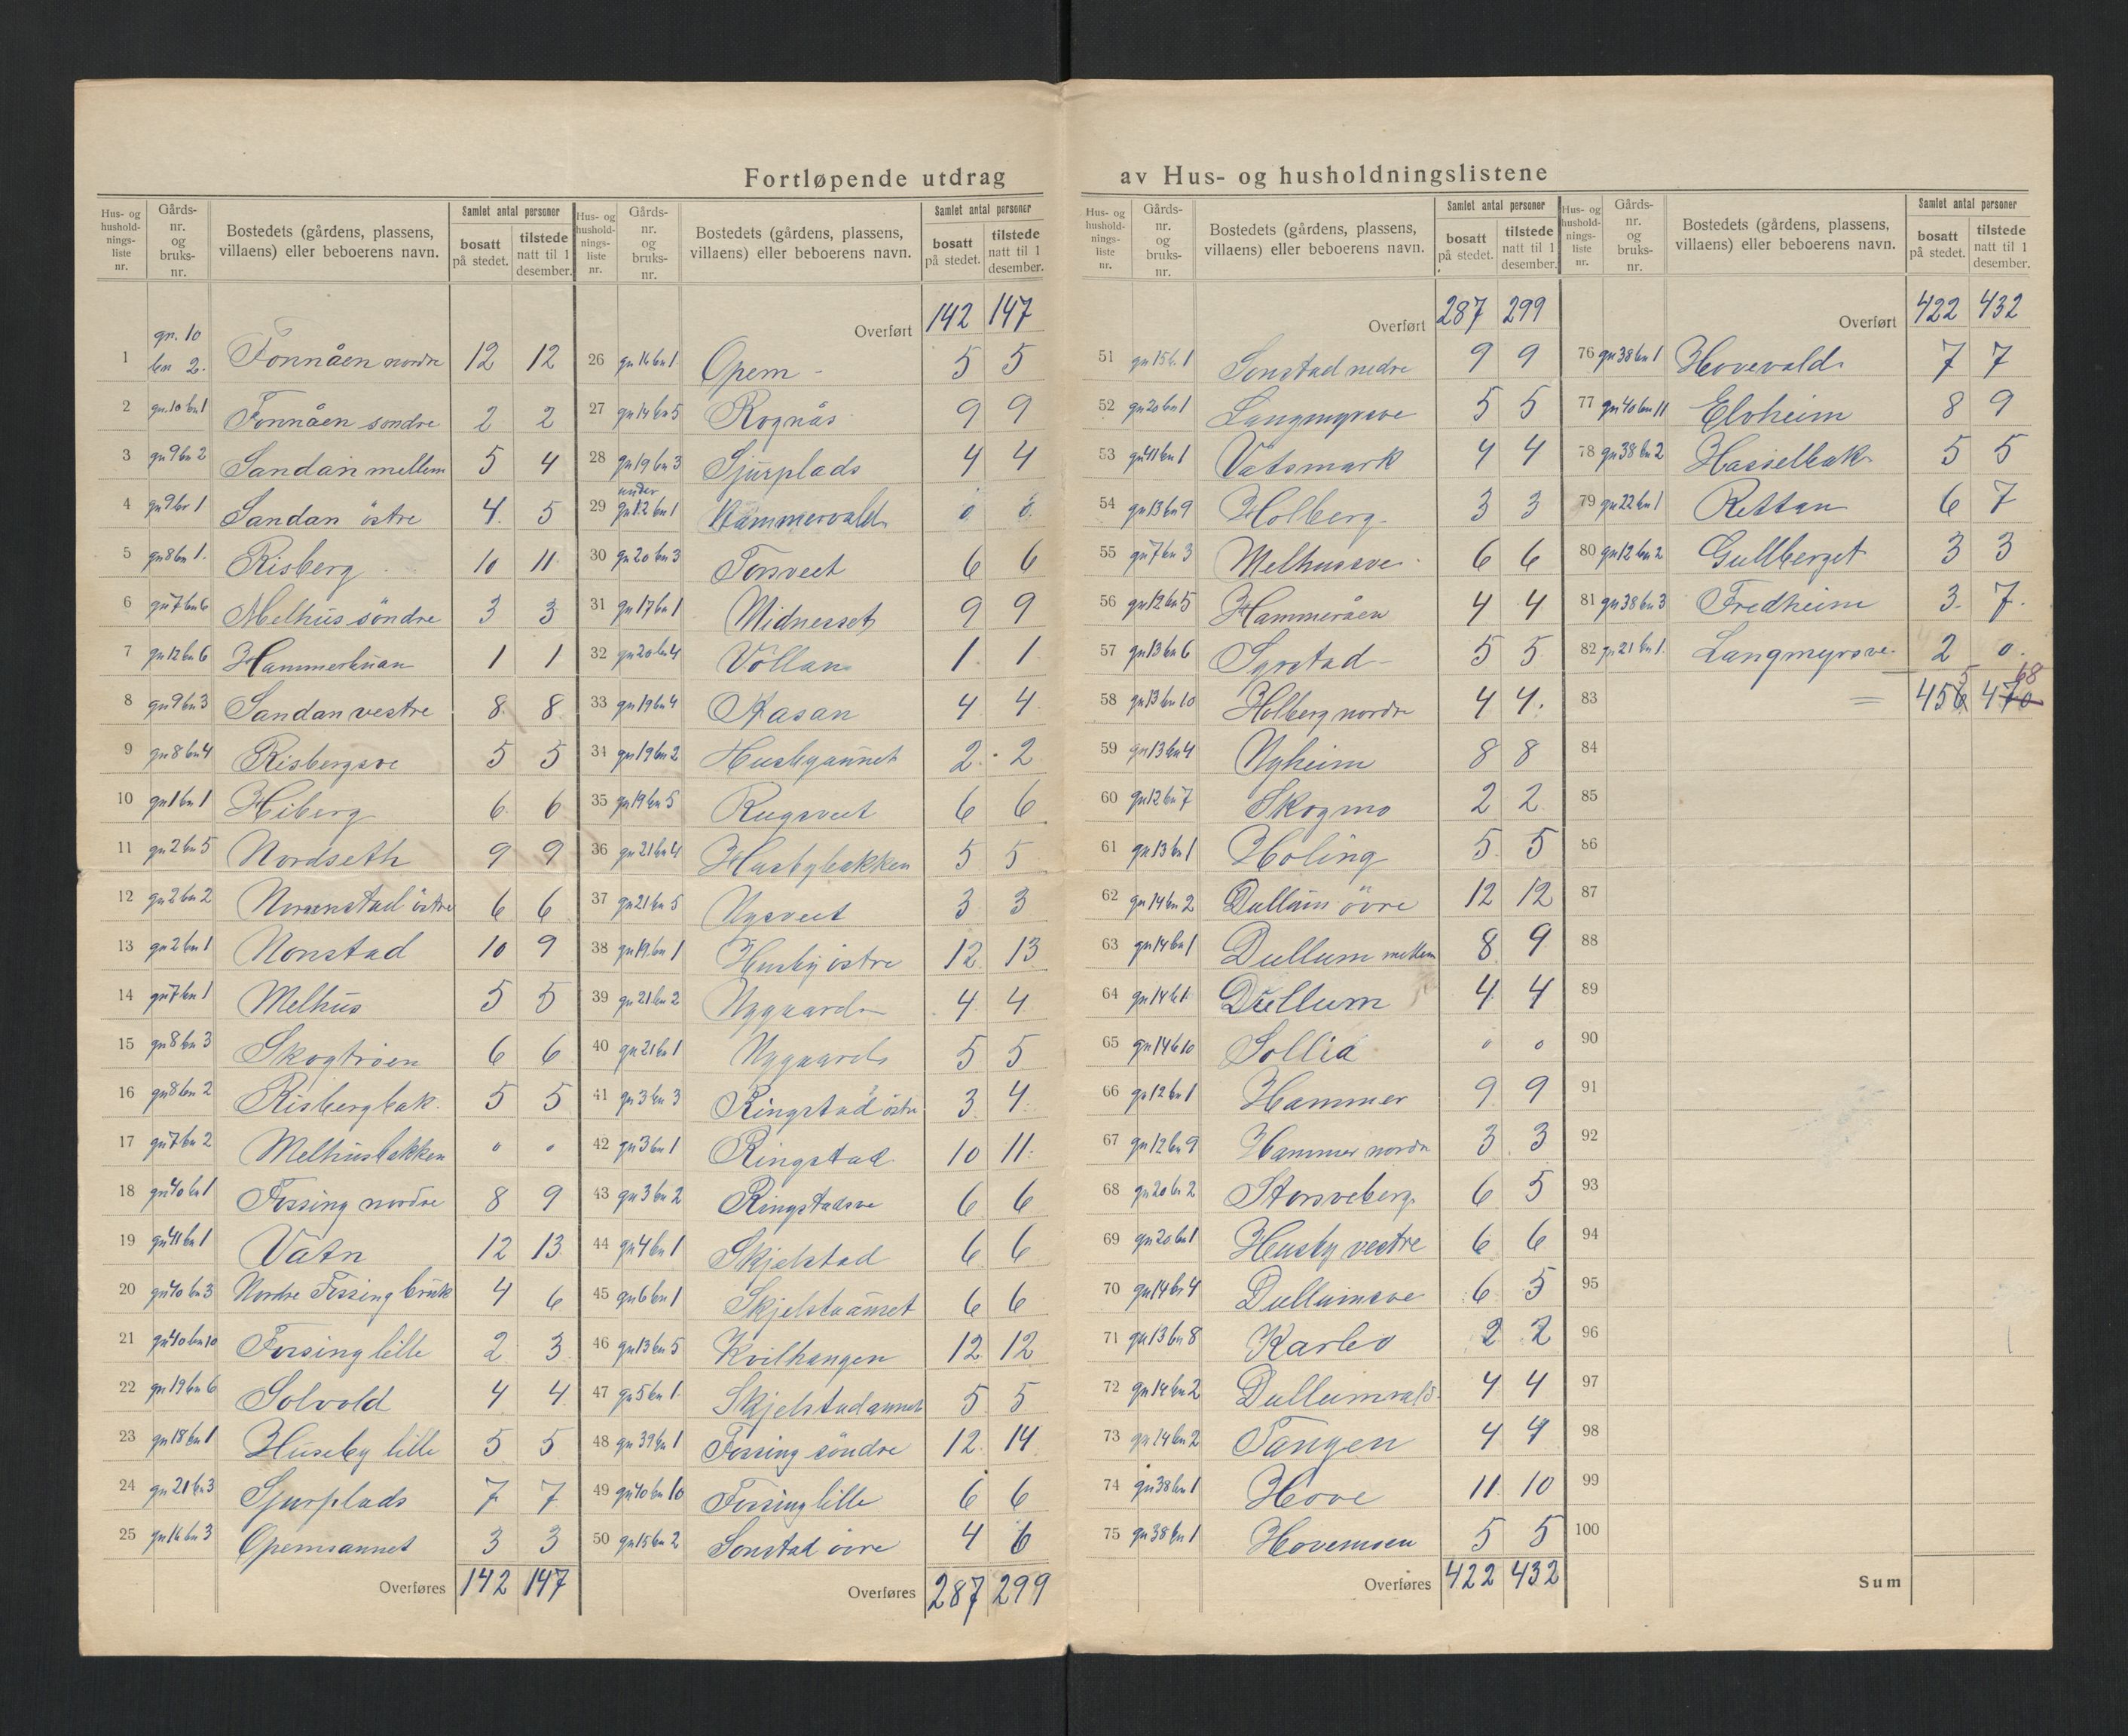 Fortløpende utdrag av Hus- og husholdningslistene
Hus- og hushold-nings-liste nr. Gårds-nr. og bruks-nr. Bostedets (gårdens, plassens, villaens) eller beboerens navn. Samlet antal personer bosatt på stedet. tilstede natt til 1 desember.
1 gn. 10 bn 2. Fonnåen nordre 12 12
2 gn. 10 bn 1 Fonnåen söndre 2 2
3 gn 9 bn 2 Sandan mellem 5 4
4 gn 9 br 1 Sandan östre 4 5
5 gn 8 bn 1. Risberg 10 11
6 gn 7 bn 6 Melhus söndre 3 3
7 gn 12 bn 6 Hammerhuan 1 1
8 gn 9 bn 3 Sandan vestre 8 8
9 gn 8 bn 4 Risbergsve 5 5
10 gn 1 bn 1 Hiberg 6 6
11 gn 2 bn 5 Nordseth 9 9
12 gn 2 bn 2 Nonnstad östre 6 6
13 gn 2 bn 1 Nonstad 10 9
14 gn 7 bn 1 Melhus 5 5
15 gn 8 bn 3 Skogtröen 6 6
16 gn 8 bn 2 Risbergbak. 5 5
17 gn 7 bn 2 Melhusbakken 0 0
18 gn 40 bn 1 Fossing nordre 8 9
19 gn 41 bn 1 Vatn 12 13
20 gn 40 bn 3 Nordre Fossing bruk 4 6
21 gn 40 bn 10 Fossing lille 2 3
22 gn 19 bn 6 Solvold 4 4
23 gn 18 bn 1 Huseby lille 5 5
24 gn 21 bn 3 Sjurplads 7 7
25 gn 16 bn 3 Opemsannet 3 3
Overføres 142 147
Hus- og hushold-nings-liste nr. Gårds-nr. og bruks-nr. Bostedets (gårdens, plassens, villaens) eller beboerens navn. Samlet antal personer bosatt på stedet. tilstede natt til 1 desember.
Overført 142 147
26 gn 16 bn 1 Opem 5 5
27 gn 14 bn 5 Rognås 9 9
28 gn 19 bn 3 Sjurplads 4 4
29 under gn 12 bn 1 Hammervald 0 0
30 gn 20 bn 3 Torsveet 6 6
31 gn 17 bn 1 Midnesset 9 9
32 gn 20 bn 4 Vollan 1 1
33 gn 19 bn 4 Aasan 4 4
34 gn 19 bn 2 Husbyaunet 2 2
35 gn 19 bn 5 Rugsveet 6 6
36 gn 21 bn 4 Husbybakken 5 5
37 gn 21 bn 5 Nysveet 3 3
38 gn 19 bn 1 Husby östre 12 13
39 gn 21 bn 2 Nygaard 4 4
40 gn 21 bn 1 Nygaard 5 5
41 gn 3 bn 3 Ringstad östre 3 4
42 gn 3 bn 1 Ringstad 10 11
43 gn 3 bn 2 Ringstadsve 6 6
44 gn 4 bn 1 Skjelstad 6 6
45 gn 6 bn 1 Skjelstaunet 6 6
46 gn 13 bn 5 Kvilhaugen 12 12
47 gn 5 bn 1 Skjelstadaunet 5 5
48 gn 39 bn 1 Fossing söndre 12 14
49 gn 40 bn 10 Fossing lille 6 6
50 gn 15 bn 2 Sonstad övre 4 6
Overføres 287 299
Hus- og hushold-nings-liste nr. Gårds-nr. og bruks-nr. Bostedets (gårdens, plassens, villaens) eller beboerens navn. Samlet antal personer bosatt på stedet. tilstede natt til 1 desember.
Overført 287 299
51 gn 15 b. 1 Sonstad nedre 9 9
52 gn 20 bn 1 Langmyrsve 5 5
53 gn 41 bn 1 Vatsmark 4 4
54 gn 13 bn 9 Holberg 3 3
55 gn 7 bn 3 Melhussve 6 6
56 gn 12 bn 5 Hammeråen 4 4
57 gn 13 bn 6 Syrstad 5 5
58 gn 13 bn 10 Holberg nordre 4 4
59 gn 13 bn 4 Nyheim 8 8
60 gn 12 bn 7 Skogmo 2 2
61 gn 13 bn 1 Holing 5 5
62 gn 14 bn 2 Dullum övre 12 12
63 gn 14 bn 1 Dullum mellem 8 9
64 gn 14 b 1 Dullum 4 4
65 gn 14 b 10 Sollia 0 0
66 gn 12 bn 1 Hammer 9 9
67 gn 12 bn 9 Hammer nordre 3 3
68 gn 20 bn 2 Storsveberg 6 5
69 gn 20 bn 1 Husby vestre 6 6
70 gn 14 bn 4 Dullumsve 6 5
71 gn 13 bn 8 Karlbo 2 2
72 gn 14 bn 2 Dullumvald 4 4
73 gn 14 bn 2 Tangen 4 4
74 gn 38 bn 1 Hove 11 10
75 gn 38 bn 1 Hovemoen 5 5
Overføres 422 432
Hus- og hushold-nings-liste nr. Gårds-nr. og bruks-nr. Bostedets (gårdens, plassens, villaens) eller beboerens navn. Samlet antal personer bosatt på stedet. tilstede natt til 1 desember.
Overført 422 432
76 gn 38 bn 1 Hovevald 7 7
77 gn 40 bn 11 Elvheim 8 9
78 gn 38 bn 2 Hasselbak 5 5
79 gn 22 bn 1 Rettan 6 7
80 gn 12 bn 2 Gullberget 3 3
81 gn 38 bn 3 Fredheim 3 7
82 gn 21 bn 1 Langmyrsve 2 0
5 68
83 = 456 470
84
85
86
87
88
89
90
91
92
93
94
95
96
97
98
99
100
Sum